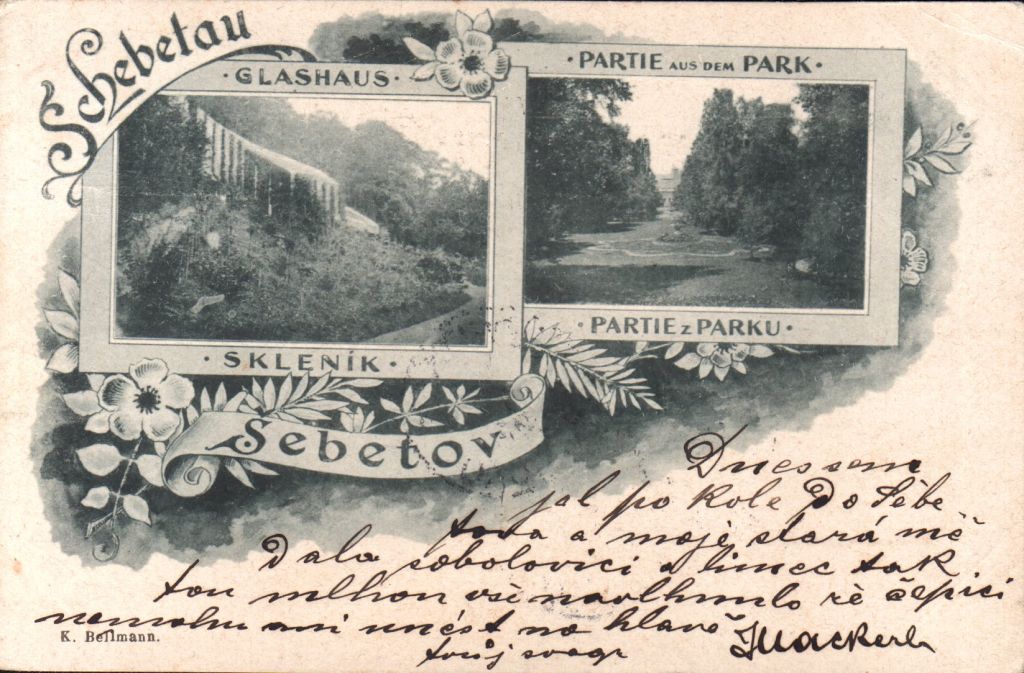 Schebetau
· GLASHAUS ·
· PARTIE AUS DEM PARK ·
· SKLENÍK ·
· PARTIE Z PARKU ·
Sebetov
Dnes sem
jel po kole Do Šebe
tova a moje stará mě
Dala sobolovici a límec tak
tou mlhou vše navlhnulo že čepici
nemohu ani unést na hlavě
tvůj svagr
K. Bellmann.